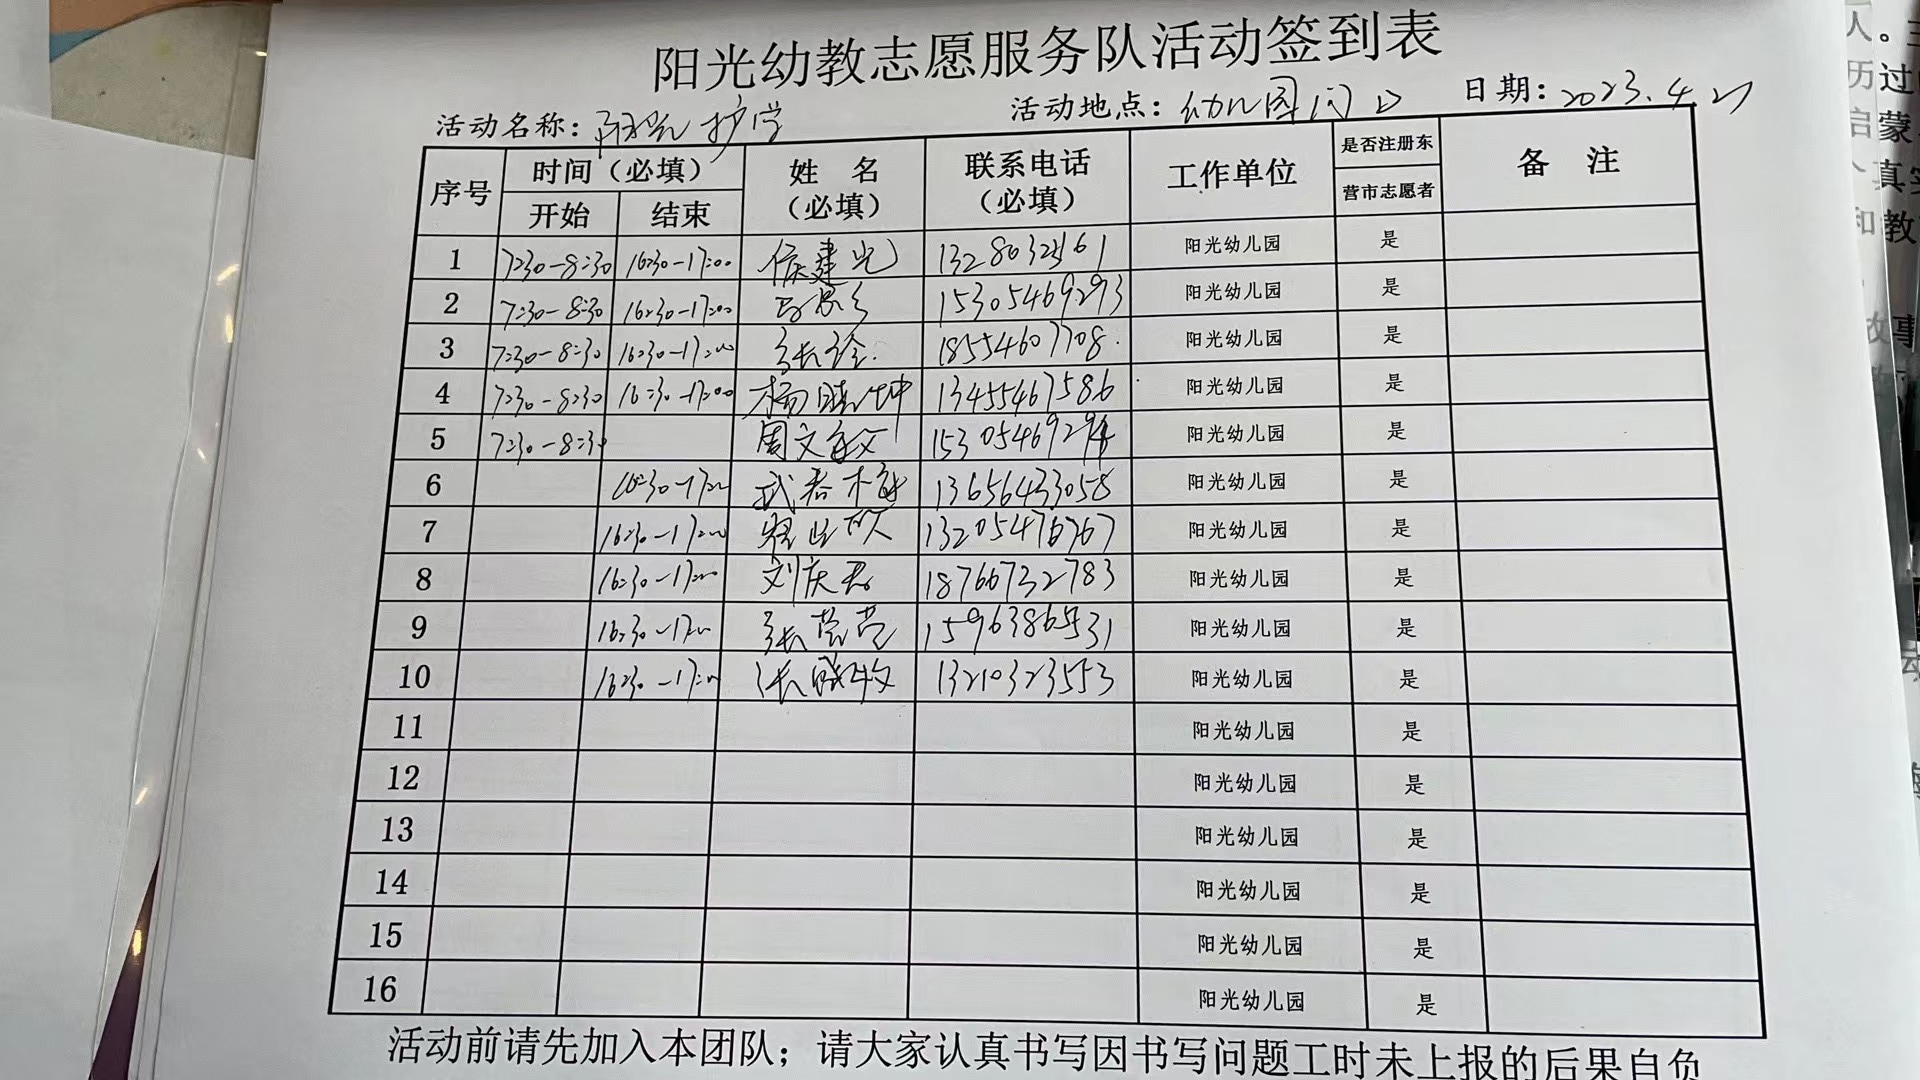 阳光幼教志愿服务队活动签到表
活动名称：阳光护学 活动地点：幼儿园门口 日期：2023.4.21
序号 时间（必填） 姓 名（必填） 联系电话（必填） 工作单位 是否注册东营市志愿者 备 注
开始 结束
1 7:30-8:30 16:30-17:00 侯建光 阳光幼儿园 是
2 7:30-8:30 16:30-17:00 15305469293 阳光幼儿园 是
3 7:30-8:30 16:30-17:00 18554607708 阳光幼儿园 是
4 7:30-8:30 16:30-17:00 杨晓坤 13455467586 阳光幼儿园 是
5 7:30-8:30 阳光幼儿园 是
6 16:30-17:00 13656433058 阳光幼儿园 是
7 16:30-17:00 13205476767 阳光幼儿园 是
8 16:30-17:00 刘庆君 18766732783 阳光幼儿园 是
9 16:30-17:00 张营营 15963865531 阳光幼儿园 是
10 16:30-17:00 张晓牧 13210323553 阳光幼儿园 是
11 阳光幼儿园 是
12 阳光幼儿园 是
13 阳光幼儿园 是
14 阳光幼儿园 是
15 阳光幼儿园 是
16 阳光幼儿园 是
活动前请先加入本团队；请大家认真书写因书写问题工时未上报的后果自负